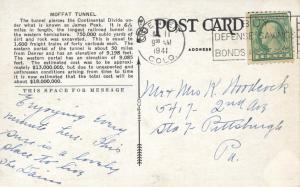 MOFFAT TUNNEL
The tunnel pierces the Continental Divide under what is known as James Peak. It is 6.4 miles in length, the longest railroad tunnel in the western hemisphere. 750,000 cubic yards of dirt and rock was excavated. This is equal to 1,600 freight trains of forty carloads each. The eastern portal of the tunnel is about 50 miles from Denver and has an elevation of 9,198 feet. The western portal has an elevation of 9,085 feet. The estimated cost was approximately $13,000,000, but due to unexpected and unforeseen conditions arising from time to time it is now estimated that the total cost will be about $18,000,000.
THIS SPACE FOR MESSAGE
Enjoying every
minute here. This
sure is a lovely
place to live
POST CARD
ADDRESS
1941
COLO.
DEFENSE SAVINGS
BONDS
Mr & Mrs K
5417 2nd Ave
Pittsburgh
Pa.